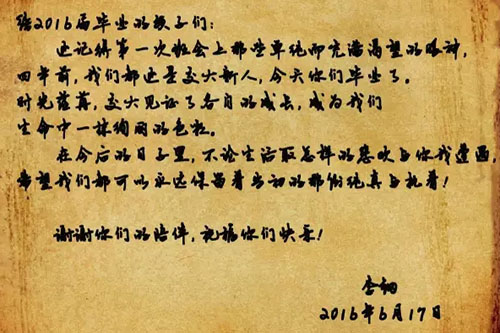 给2016届毕业的孩子们:
还记得第一次班会上那些单纯而充满渴望的眼神,
四年前,我们都还是交大新人,今天你们毕业了。
时光荏苒,交大见证了各自的成长,成为我们
生命中一抹绚丽的色彩。
在今后的日子里,不论生活取怎样的悲欢与你我遭遇
希望我们都可以永远保留着当初的那份纯真与执着!
谢谢你们的陪伴,祝福你们快乐!
李
2016年6月17日